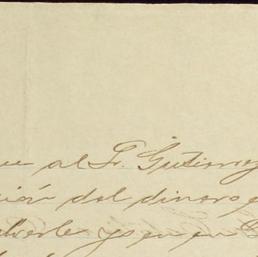 ue al Sr. Gutierrez
ción del dinero e
lverle yo en en